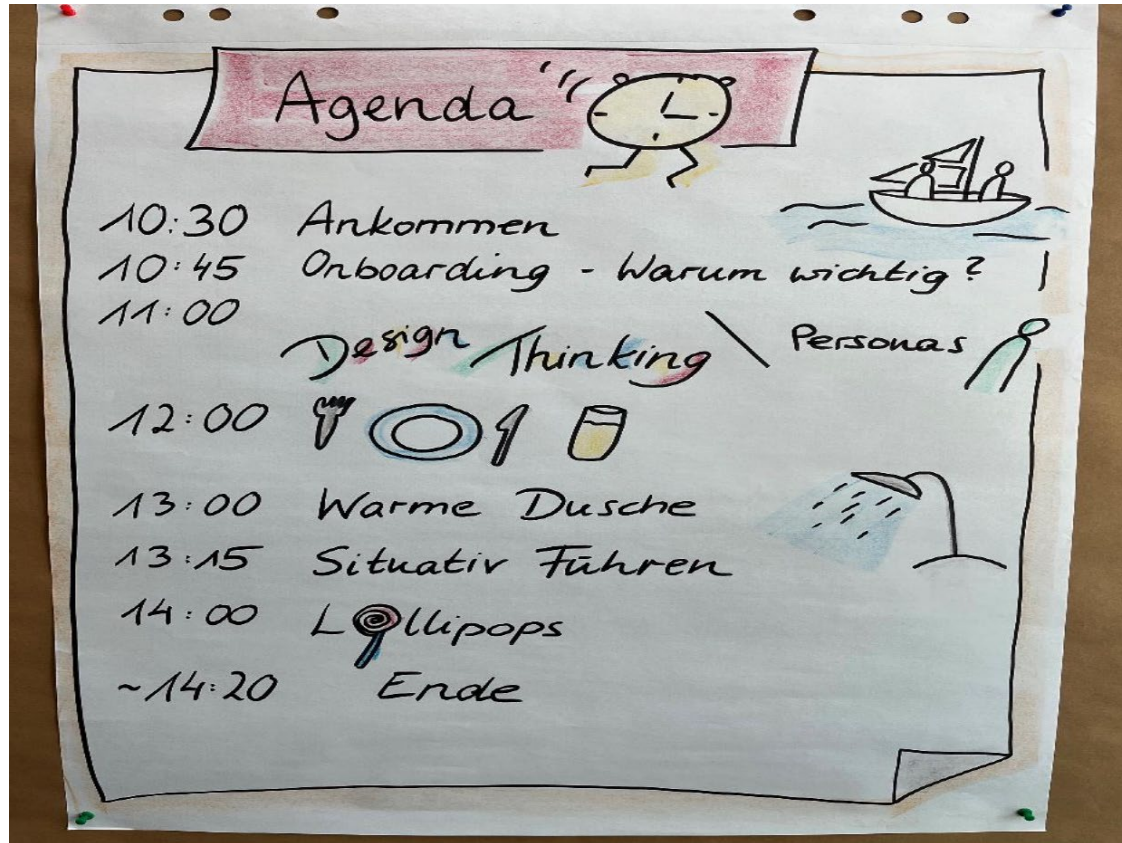 Agenda
10:30 Ankommen
10:45 Onboarding - Warum wichtig?
11:00
Design Thinking \ Personas
12:00
13:00 Warme Dusche
13:15 Situativ Führen
14:00 Lollipops
~14:20 Ende